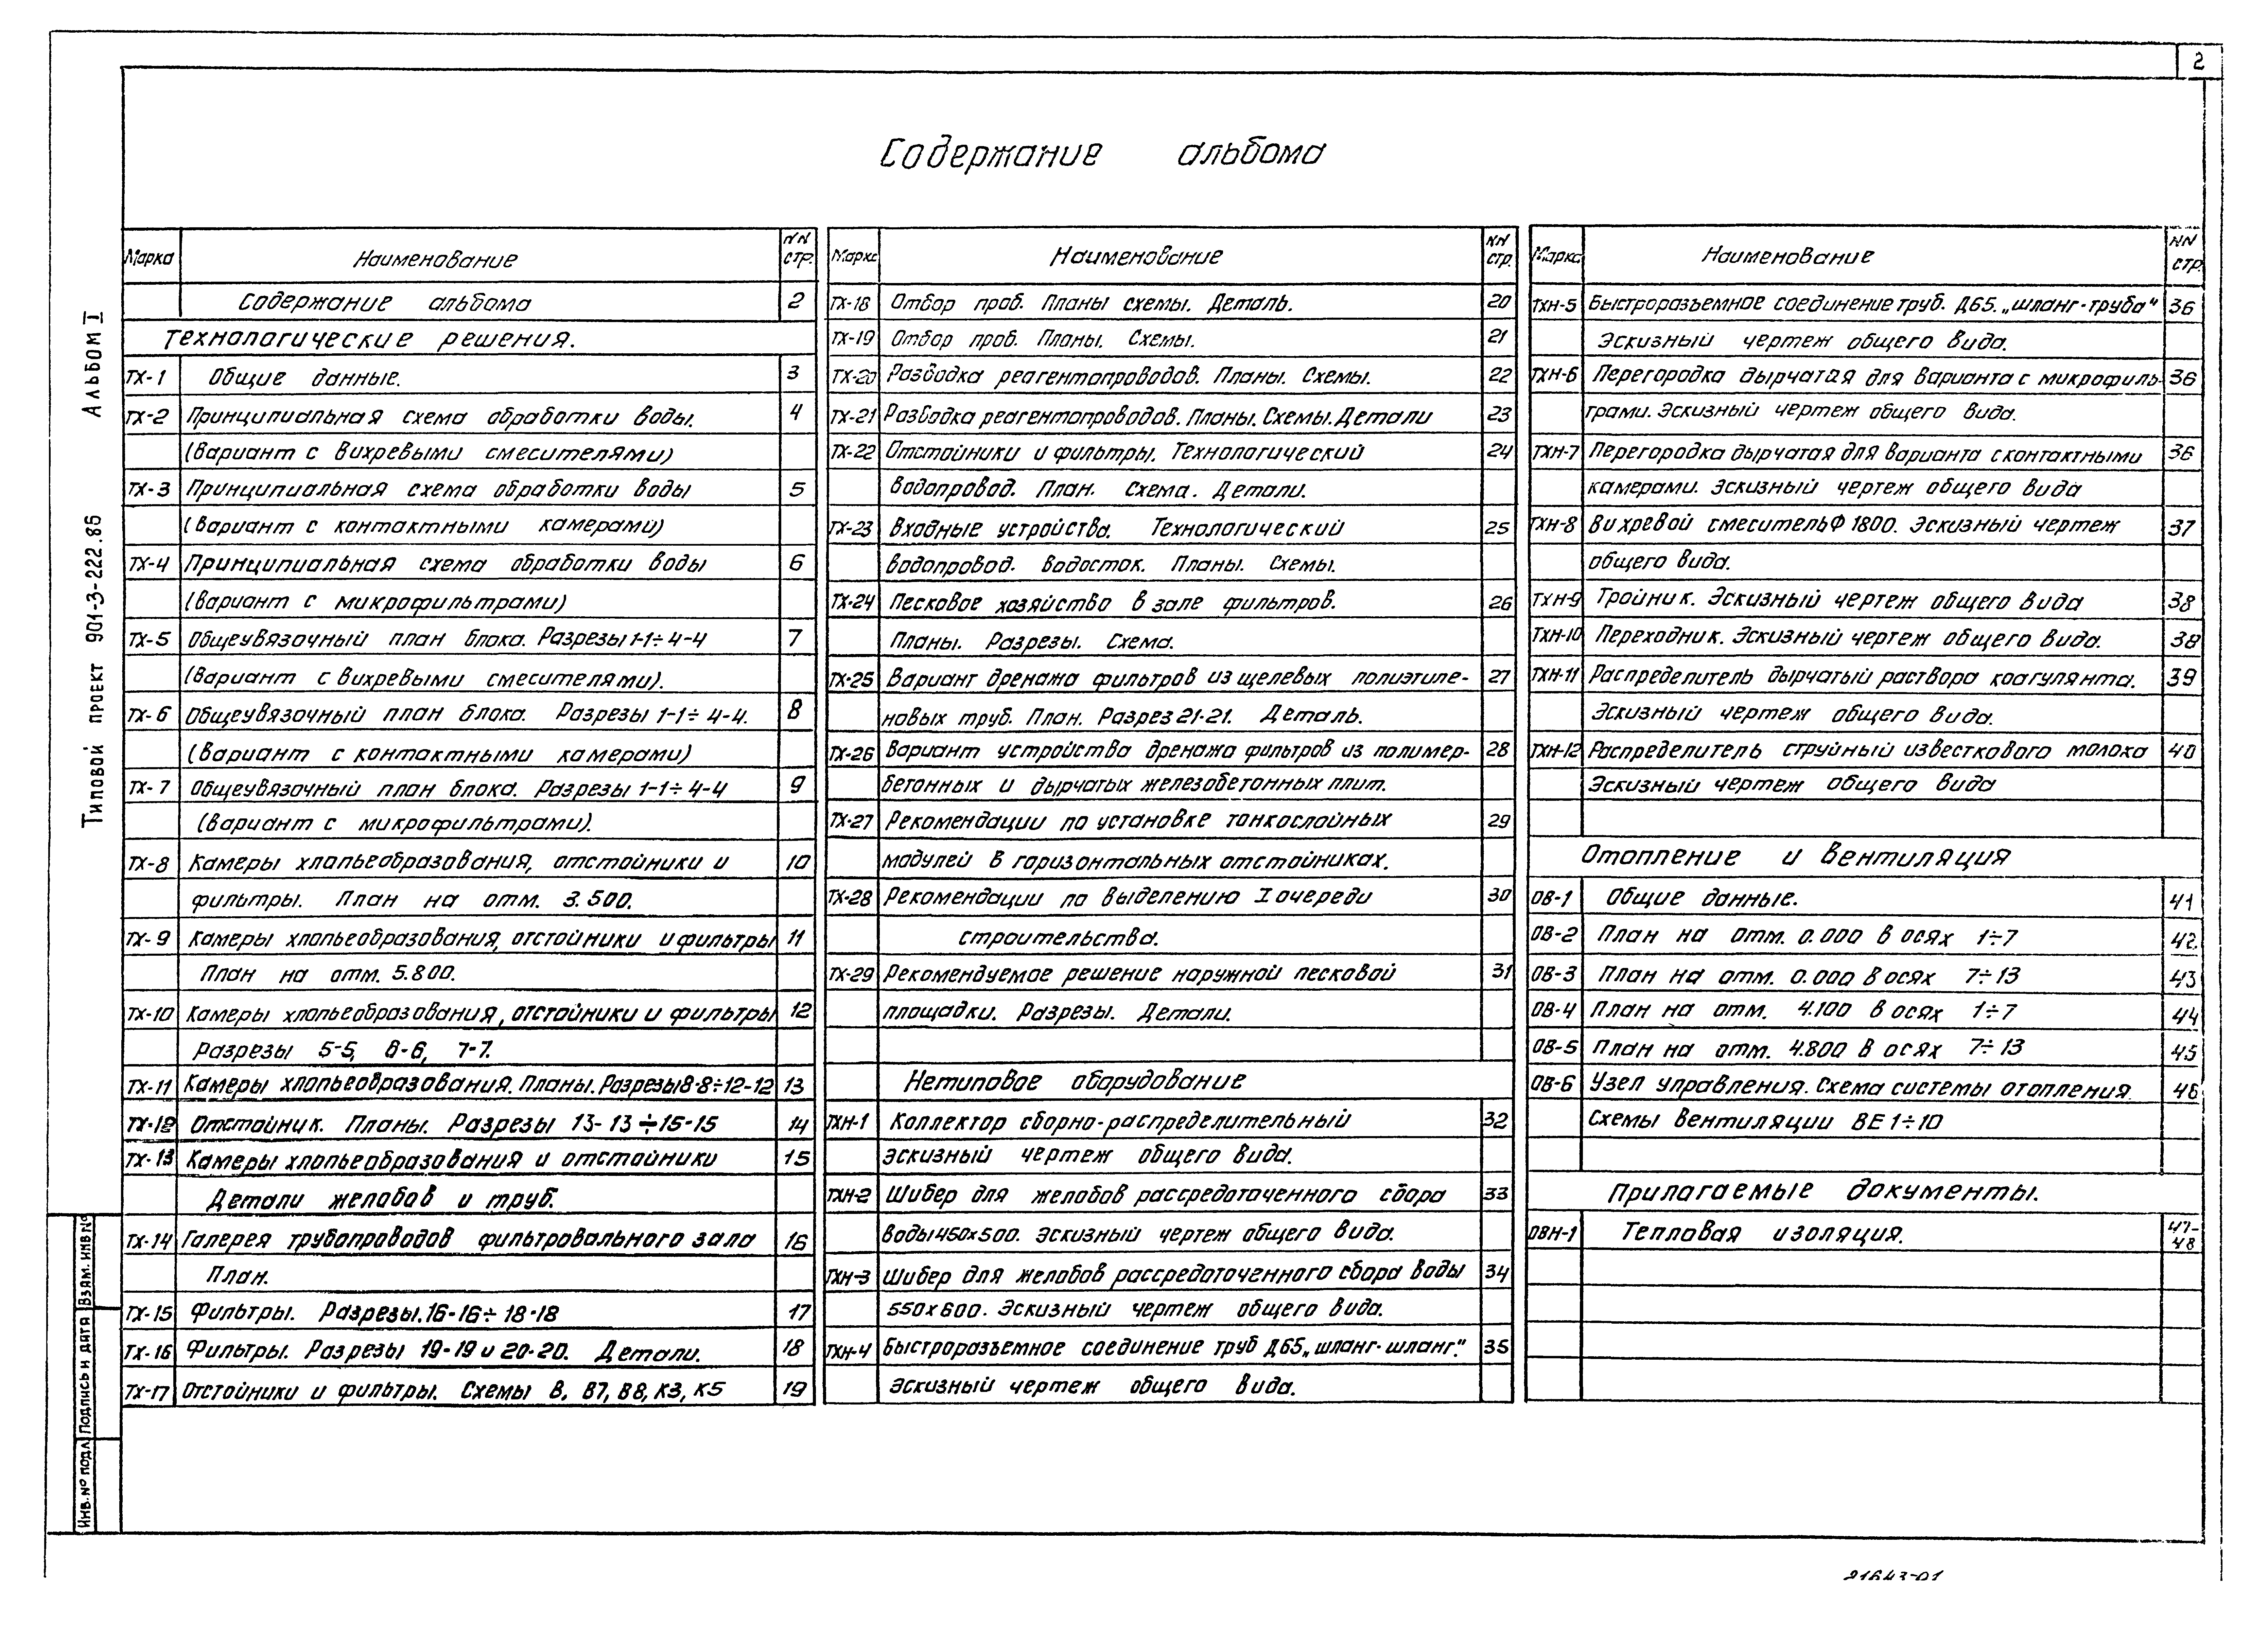 2
Содержание альбома
Марка Наименование NN стр.
Содержание альбома 2
Технологические решения.
ТХ-1 Общие данные. 3
ТХ-2 Принципиальная схема обработки воды. 4
(Вариант с вихревыми смесителями)
ТХ-3 Принципиальная схема обработки воды 5
(Вариант с контактными камерами)
ТХ-4 Принципиальная схема обработки воды 6
(Вариант с микрофильтрами)
ТХ-5 Общеувязочный план блока. Разрезы 1-1÷4-4 7
(Вариант с вихревыми смесителями).
ТХ-6 Общеувязочный план блока. Разрезы 1-1÷4-4. 8
(Вариант с контактными камерами)
ТХ-7 Общеувязочный план блока. Разрезы 1-1÷4-4 9
(Вариант с микрофильтрами).
ТХ-8 Камеры хлопьеобразования, отстойники и 10
фильтры. План на отм. 3.500.
ТХ-9 Камеры хлопьеобразования, отстойники и фильтры 11
План на отм. 5.800.
ТХ-10 Камеры хлопьеобразования, отстойники и фильтры 12
Разрезы 5-5, 6-6, 7-7.
ТХ-11 Камеры хлопьеобразования. Планы. Разрезы 8-8÷12-12 13
ТХ-12 Отстойник. Планы. Разрезы 13-13÷15-15 14
ТХ-13 Камеры хлопьеобразования и отстойники 15
Детали желобов и труб.
ТХ-14 Галерея трубопроводов фильтровального зала 16
План.
ТХ-15 Фильтры. Разрезы. 16-16÷18-18 17
ТХ-16 Фильтры. Разрезы 19-19 и 20-20. Детали. 18
ТХ-17 Отстойники и фильтры. Схемы В, В7, В8, К3, К5 19
Марка Наименование NN стр.
ТХ-18 Отбор проб. Планы схемы. Деталь. 20
ТХ-19 Отбор проб. Планы. Схемы. 21
ТХ-20 Разводка реагентопроводов. Планы. Схемы. 22
ТХ-21 Разводка реагентопроводов. Планы. Схемы. Детали 23
ТХ-22 Отстойники и фильтры. Технологический 24
водопровод. План. Схема. Детали.
ТХ-23 Входные устройства. Технологический 25
водопровод. Водосток. Планы. Схемы.
ТХ-24 Песковое хозяйство в зале фильтров. 26
Планы. Разрезы. Схема.
ТХ-25 Вариант дренажа фильтров из щелевых полиэтиле- 27
новых труб. План. Разрез 21-21. Деталь.
ТХ-26 Вариант устройства дренажа фильтров из полимер- 28
бетонных и дырчатых железобетонных плит.
ТХ-27 Рекомендации по установке тонкослойных 29
модулей в горизонтальных отстойниках.
ТХ-28 Рекомендации по выделению I очереди 30
строительства.
ТХ-29 Рекомендуемое решение наружной песковой 31
площадки. Разрезы. Детали.
Нетиповое оборудование
ТХН-1 Коллектор сборно-распределительный 32
эскизный чертеж общего вида.
ТХН-2 Шибер для желобов рассредоточенного сбора 33
воды 450х500. Эскизный чертеж общего вида.
ТХН-3 Шибер для желобов рассредоточенного сбора воды 34
550х600. Эскизный чертеж общего вида.
ТХН-4 Быстроразъемное соединение труб Д65 „шланг-шланг." 35
Эскизный чертеж общего вида.
Марка Наименование NN стр.
ТХН-5 Быстроразъемное соединение труб. Д65. „шланг-труба" 36
Эскизный чертеж общего вида.
ТХН-6 Перегородка дырчатая для варианта с микрофиль- 36
трами. Эскизный чертеж общего вида.
ТХН-7 Перегородка дырчатая для варианта с контактными 36
камерами. Эскизный чертеж общего вида
ТХН-8 Вихревой смеситель Ф 1800. Эскизный чертеж 37
общего вида.
ТХН-9 Тройник. Эскизный чертеж общего вида 38
ТХН-10 Переходник. Эскизный чертеж общего вида. 38
ТХН-11 Распределитель дырчатый раствора коагулянта. 39
Эскизный чертеж общего вида.
ТХН-12 Распределитель струйный известкового молока 40
Эскизный чертеж общего вида
Отопление и вентиляция
ОВ-1 Общие данные. 41
ОВ-2 План на отм. 0.000 в осях 1÷7 42
ОВ-3 План на отм. 0.000 в осях 7÷13 43
ОВ-4 План на отм. 4.100 в осях 1÷7 44
ОВ-5 План на отм. 4.800 в осях 7÷13 45
ОВ-6 Узел управления. Схема системы отопления. 46
Схемы вентиляции ВЕ 1÷10
Прилагаемые документы.
ОВН-1 Тепловая изоляция. 47-48
Типовой проект 901-3-222.86 Альбом I
Инв. № подл. Подпись и дата Взам. инв №
21643-01